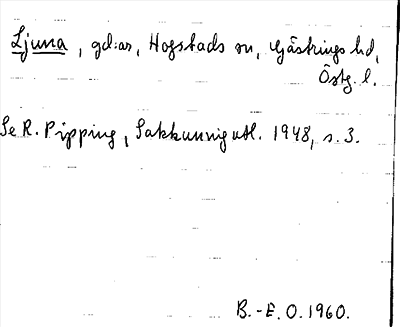 Ljuna, gd:ar, Hogstads sn, Gästrings hd,
Östg. l.
Se R. Pipping, Sakkunnigutl. 1948, s. 3.
B.-E. O. 1960.